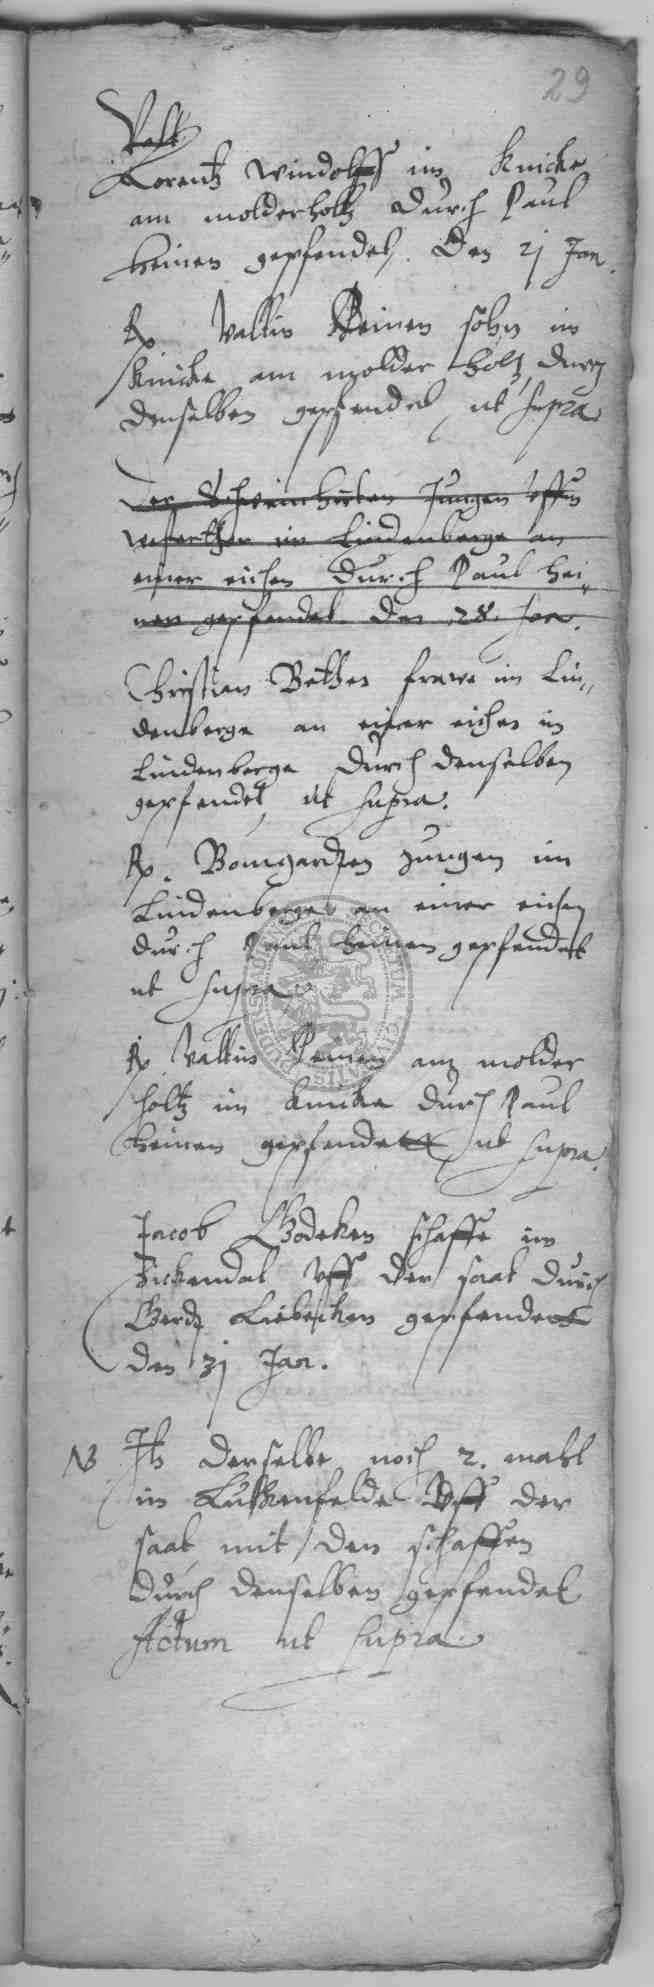 29
Valt
Lorentz Windolff im Knicke
am molderholtz durch Paul
Heinen gepfendet, den 21 Jan.
Rp Valtin Heinen sohn im
Knicke am molder holtz durch
denselben gepfendet ut supra
Der Schweinhirten Jungen vffm
im Lindenberge an
einer eichen durch Paul Hei„
nen gepfendet den 28. Jan.
Christian Bethes frawe im Lin„
denberge an einer eichen im
Lindenberge durch denselben
gepfendet, ut supra.
Rp. Bomgarden Jungen im
Lindenberge an einer eichen
durch Paul Heinen gepfendet
ut supra
Rp Valtin Heinen am molder
holtz im Knicke durch Paul
Heinen gepfendet ut supra.
Jacob Godeken schaffe im
Zickendal vff der saat durch
Gerdt Liebecken gepfendet
den 31 Jan.
NB It derselbe noch 2. mahl
im Lutkenfelde vff der
saat mit den schaffen
durch denselben gepfendet
Actum ut supra